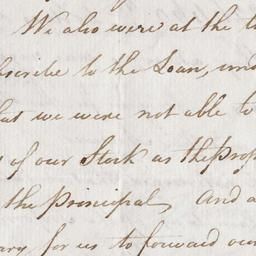 We also were at the t
scribe to the Loan, und
at we were not able to
of our Stock as the Prop
the Principal, And a
ary for us to forward our